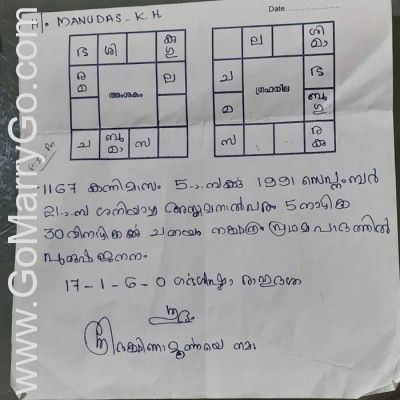 MANUDAS - K. H
Date
ഭ ശി കു ഗു
ര മ അംശകം ല
ച ബു മാ സ
ല ശി മാ
ച ഗ്രഹനില ഭ
മ ബു ഗു
സ ര കു
1167 കന്നിമാസം 5 1991 സെപ്റ്റംബർ
21 ശനിയാഴ്ച അസ്തമനാൽപരം 5 നാഴിക
30 വിനാഴികക്ക് ചതയം നക്ഷത്രം പ്രഥമ പാദത്തിൽ
പുരുഷ ജനനം
17 - 1 - 6 - 0 രാഹുദശ
ശുഭം
നമഃ
www.GoMarryGo.com
www.GoMarryGo.com